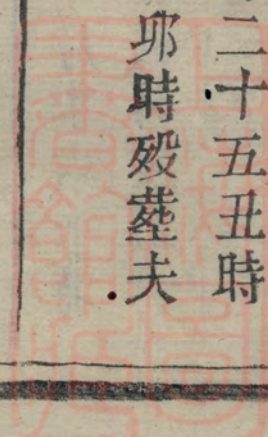 二十五丑時
卯時殁塟夫